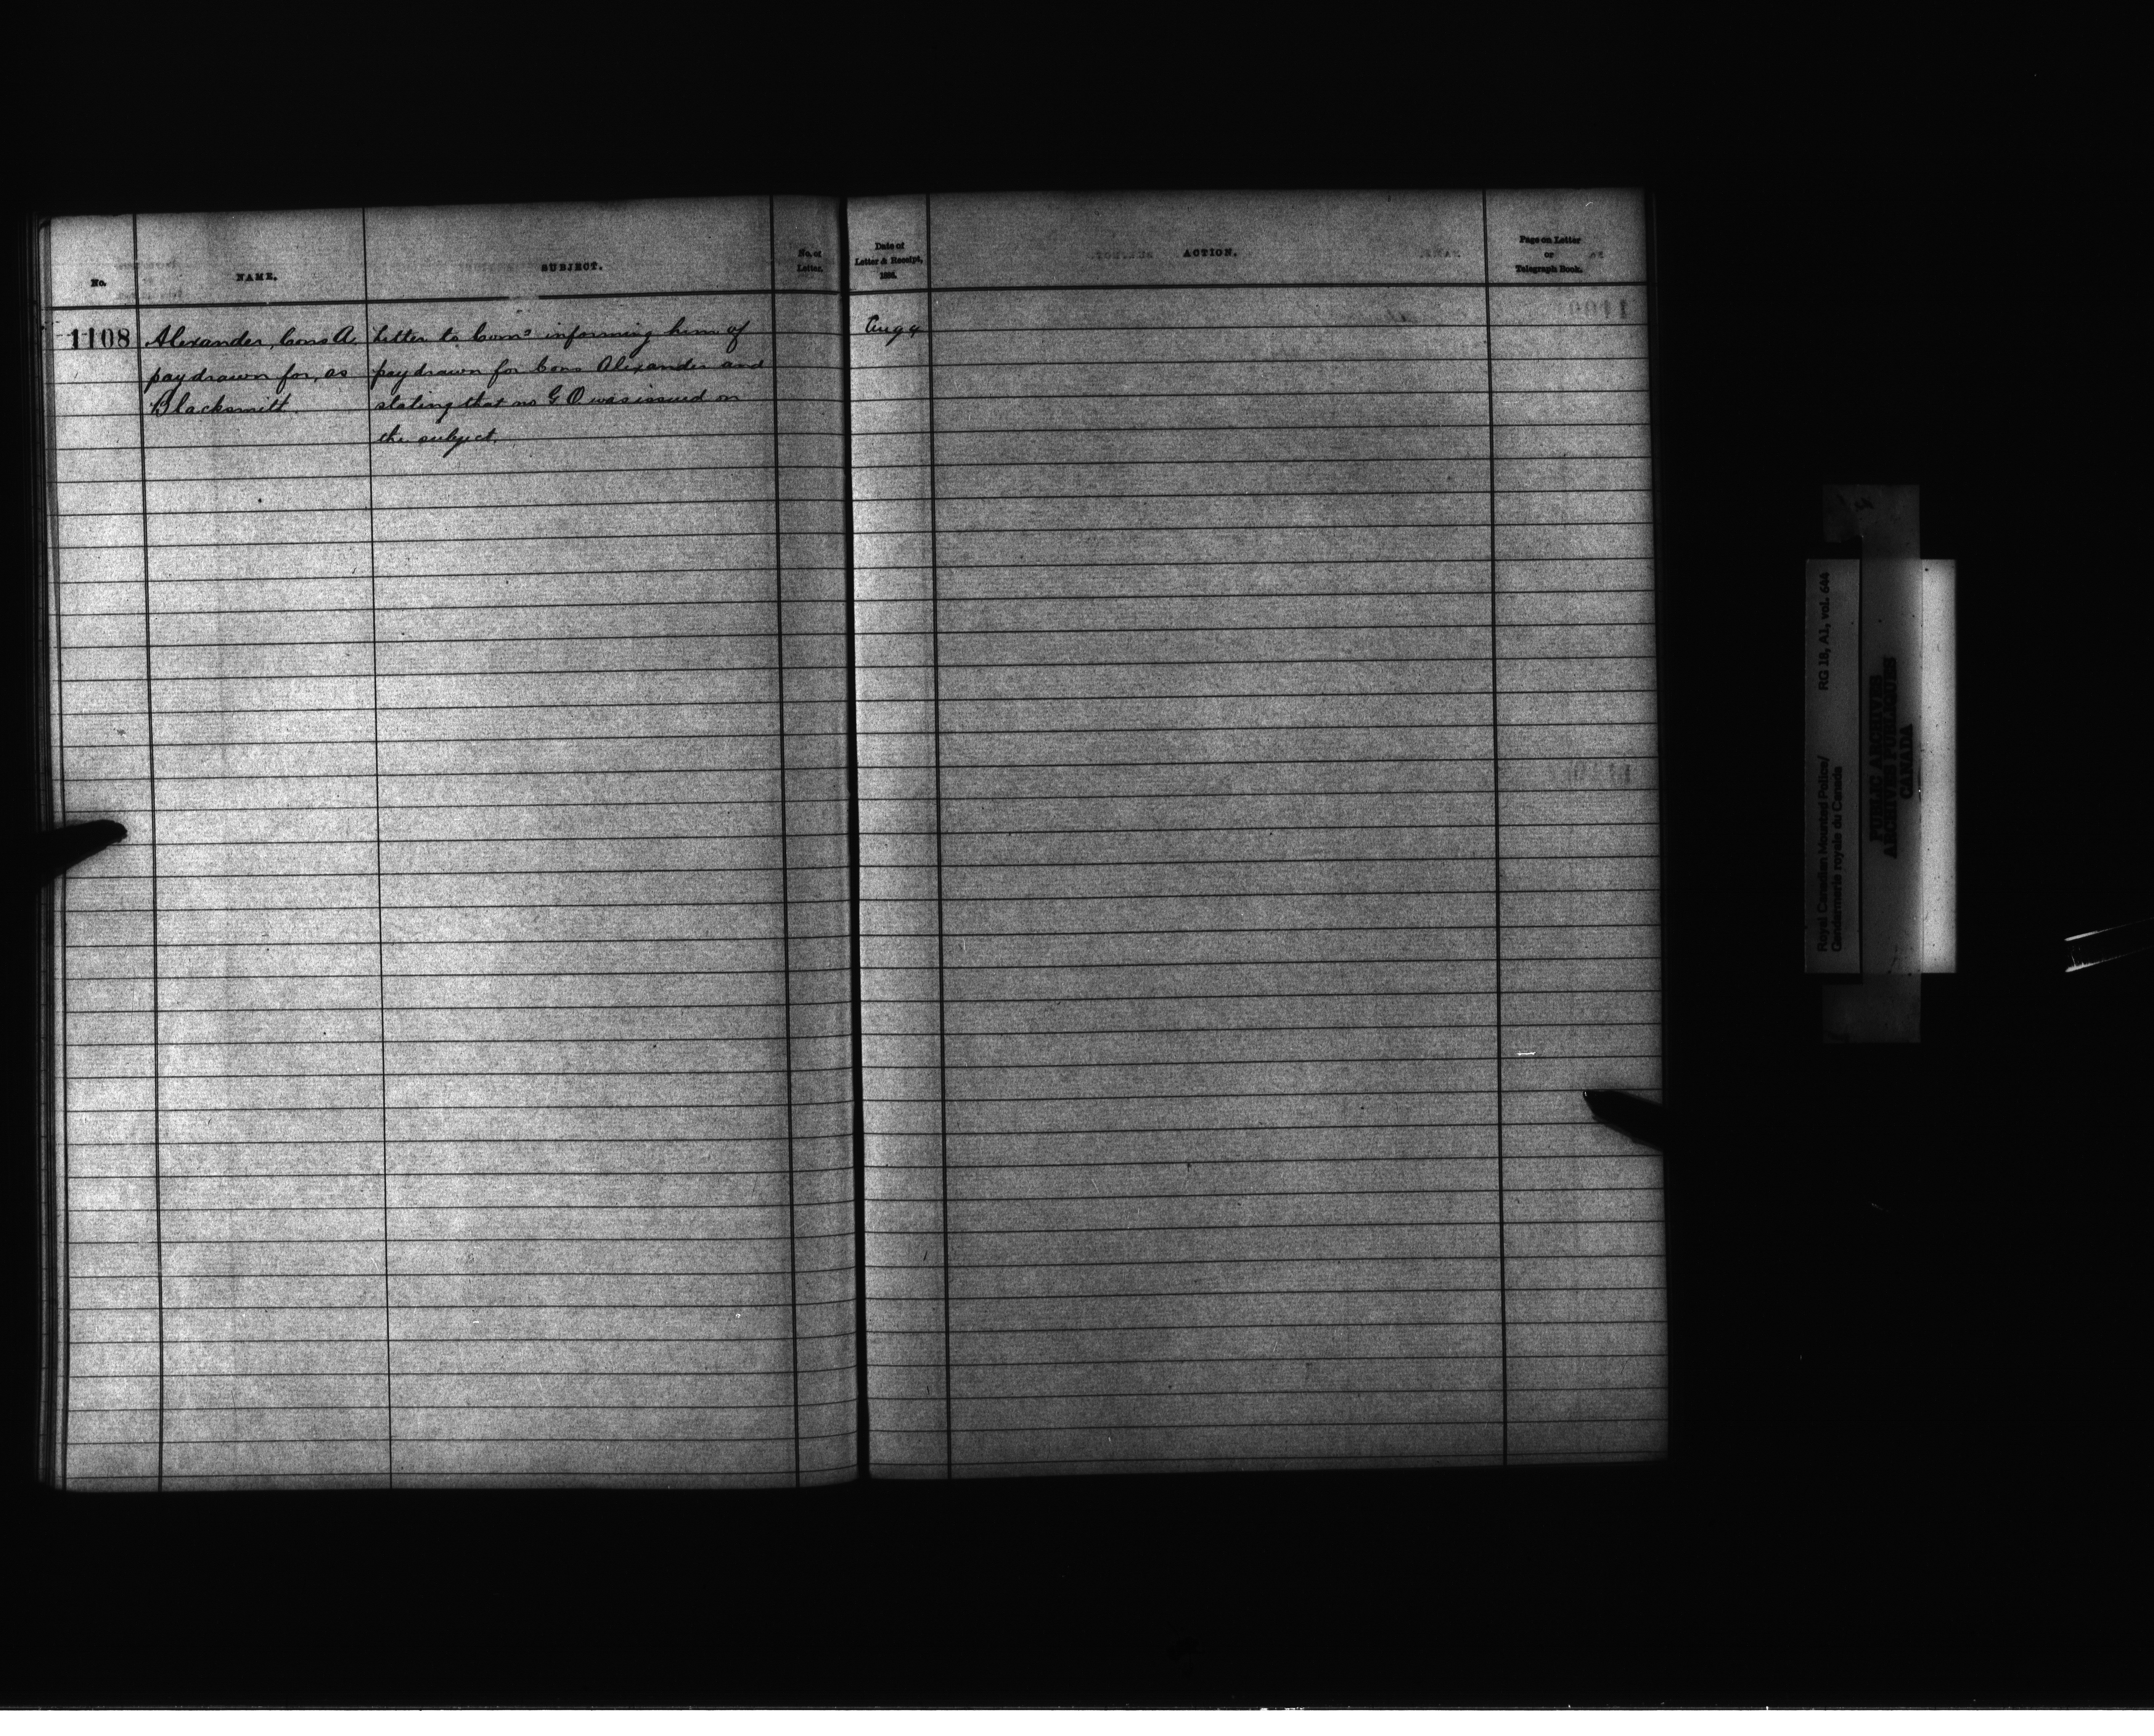 No.
NAME.
SUBJECT.
No. of
Letter.
1108
Alexander, Cons A.
pay drawn for, as
Blacksmith.
Letter to Comr informing him of
pay drawn for Cons Alexander and
stating that no G.O. was issued on
the subject.
Date of
Letter & Receipt,
ACTION.
Page on Letter
or
Telegraph Book.
Aug 4
Royal Canadian Mounted Police/
Gendarmerie royale du Canada
RG 18, A1, vol. 644
PUBLIC ARCHIVES
ARCHIVES PUBLIQUES
CANADA